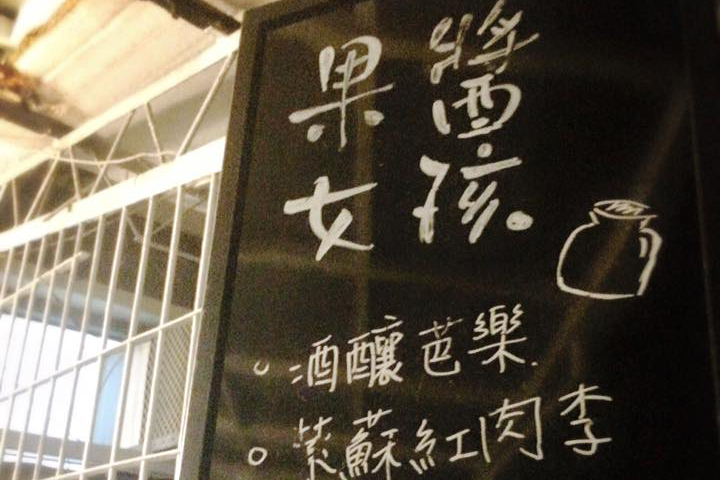 果醬
女孩。
酒釀芭樂.
紫蘇紅肉李